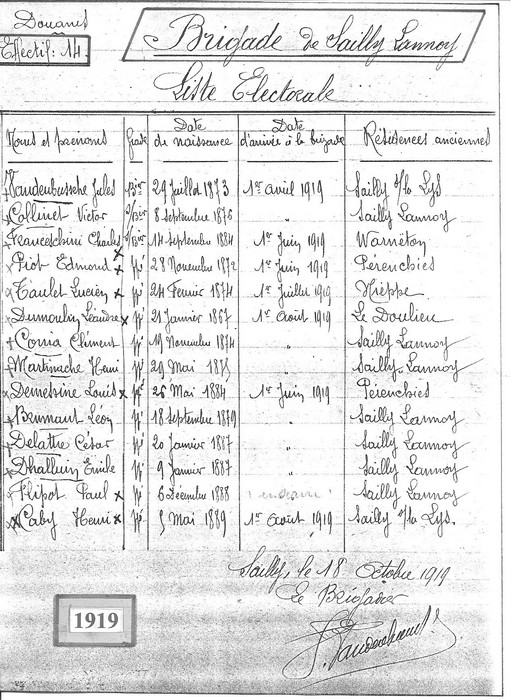 Douanes
Effectif : 14.
Brigade de Sailly Lannoy
Liste Electorale
Noms et prénoms Grade Date de naissance Date d'arrivée à la brigade Résidences anciennes
Vandenbussche Jules Bier 29 Juillet 1873 1er avril 1919 Sailly s/la Lys
Collinet Victor S/Bier 8 septembre 1876 " Sailly Lannoy
Franceschini Charles S/Bier 14 septembre 1884 1er Juin 1919 Warnêton
Piot Edmond x pé 28 Novembre 1872 1er Juin 1919 Pérenchies
Taulet Lucien x pé 24 Février 1874 1er Juillet 1919 Nieppe
Dumoulin Léandre x pé 21 Janvier 1867 1er Août 1919 Le Doulieu
Corna Clément pé 19 Novembre 1874 " Sailly Lannoy
Martinache Henri pé 29 Mai 1875 " Sailly Lannoy
Demesine Louis x pé 26 Mai 1884 1er Juin 1919 Pérenchies
Brunnaut Léon pé 18 septembre 1879 " Sailly Lannoy
Delattre César pé 20 Janvier 1887 " Sailly Lannoy
Dhalluin Emile pé 9 Janvier 1887 " Sailly Lannoy
Flipot Paul x pé 6 Décembre 1888 Sailly Lannoy
Caby Henri x pé 5 Mai 1889 1er Août 1919 Sailly s/la Lys.
Sailly, le 18 Octobre 1919
Le Brigadier
1919